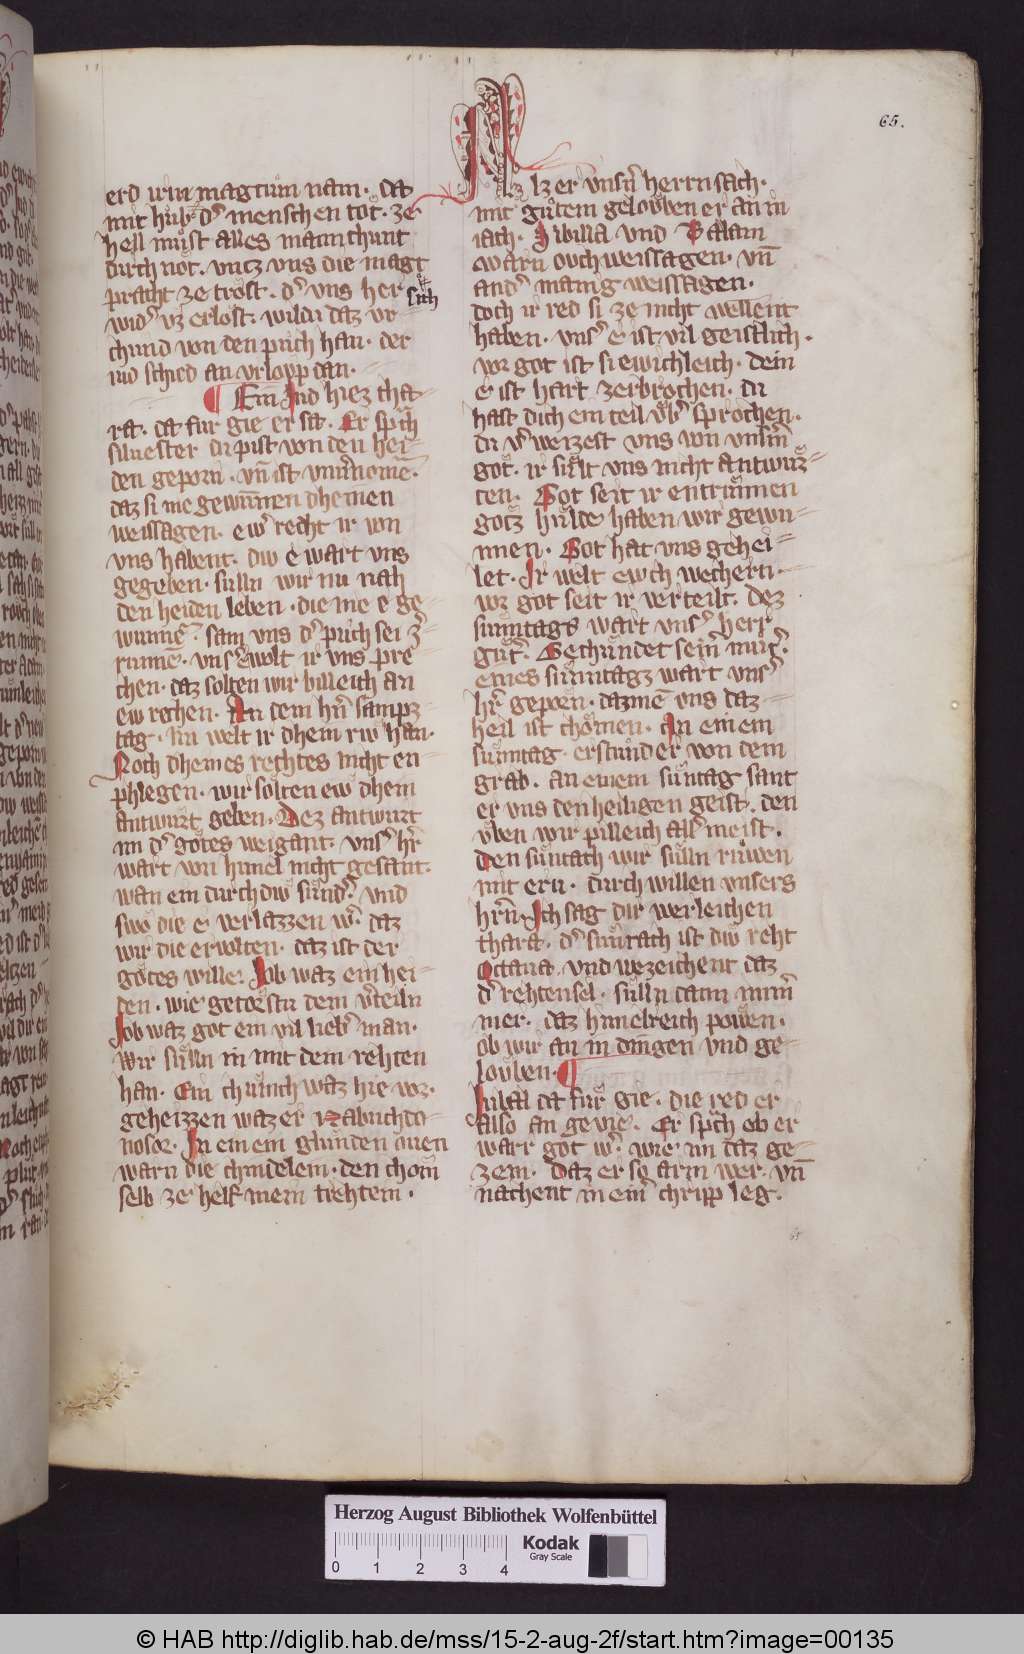 65.
erd irm magtům nam. da
mit hůb d' menschen tot. ze
hell můst alles mannchunt
durch not. untz uns die magt
pracht ze trost. d' uns her
sich
wid' uz erlost. wildu daz ur
chund von den půch han. der
iud schied an urlopp dan.
Ein Iud hiez tha
ra. da fur gie er sa. Er sp̄ch
siluester du pist von den hei
den geporn. vn̄ ist
daz si nie gewunnen dheinen
weissagen. ew̄ recht ir von
uns habent. diw e wart uns
gegeben. sulln wir nu nach
den heiden leben. die nie e ge
wunnē. sam uns d' půch sei
rumē. uns' wolt ir uns pre
chen. daz solten wir billeich an
ew rechen. An dem
tag. Im welt ir dhein rẘ han.
Noch dheines rechtes nicht en
phlegen. wir solten ew dhein
antwurt geben. Dez antwurt
im d' gotes weigant. uns' hr̄
wart von himel nicht gesant.
wan ein durch diw sund'. und
swo die e verlazzen w'. daz
wir die erwlten. daz ist der
gotes wille. Job waz ein hei
den. wie getorstu dem v'teiln
Job waz got ein vil lieb' man.
wir sůlln in mit dem rehten
han. Ein chůnich waz hie vor.
geheizzen waz er Nabuchdo
nosor. In einem gluenden ouen
warn die chindelein. den chom
selb ze helf mein trehtein.
Iz er unsr̄n herrn sach.
mit gůtem gelouben er an in
iach. Sibilla und Balaam
warn ouch weissagen. vn̄
and' manig weissagen.
doch ir red si ze nicht wellent
haben. uns' e ist vil geistlich.
vor got ist si ewichleich. dein
e ist hart zerbrochen. du
hast dich ein teil ůb' sprochen.
du v'weizest uns von unsm̄
got. ir sůlt uns nicht antwur
ten. Got seit ir entrunnen
gotz hulde haben wir gewu
nnen. Got hat uns gehei
let. Ir welt ewch
vor got seit ir verteilt. Dez
sunntags wart uns' herr
gůt'. Gechundet sein' můt'.
eines sunntagz wart uns'
hr̄ geporn. dazme uns daz
heil ist chomen. In einem
sunntag erstund er von dem
grab. an einem suntag sant
er uns den heiligen geist. den
ůben wir pilleich all' meist.
Den suntach wir sulln růwen
mit ern. durch willen unsers
hr̄n. Ich sag dir werleichen
thara. d' sunntach ist diw reht
Octaua. und bezeichent daz
d' rehten sel. sulln dann imm̄
mer. daz himelreich powen.
ob wir an in dingen und ge
louben.
Iubal da fur gie. die red er
also an gevie. Er sp̄ch ob er
warr got w'. wie im daz ge
zem. Daz er so arm wer. vn̄
nachent in ein' chripp leg.
Herzog August Bibliothek Wolfenbüttel
0 1 2 3 4
Kodak
Gray Scale
© HAB http://diglib.hab.de/mss/15-2-aug-2f/start.htm?image=00135